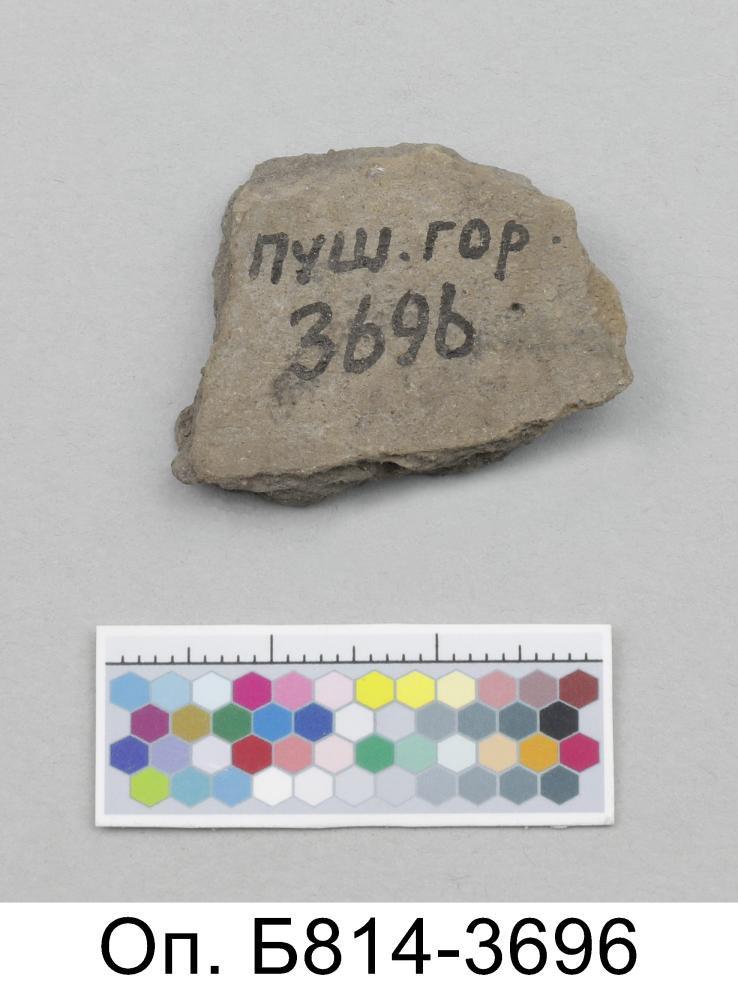 пуш.гор.
3696
Оп. Б814-3696